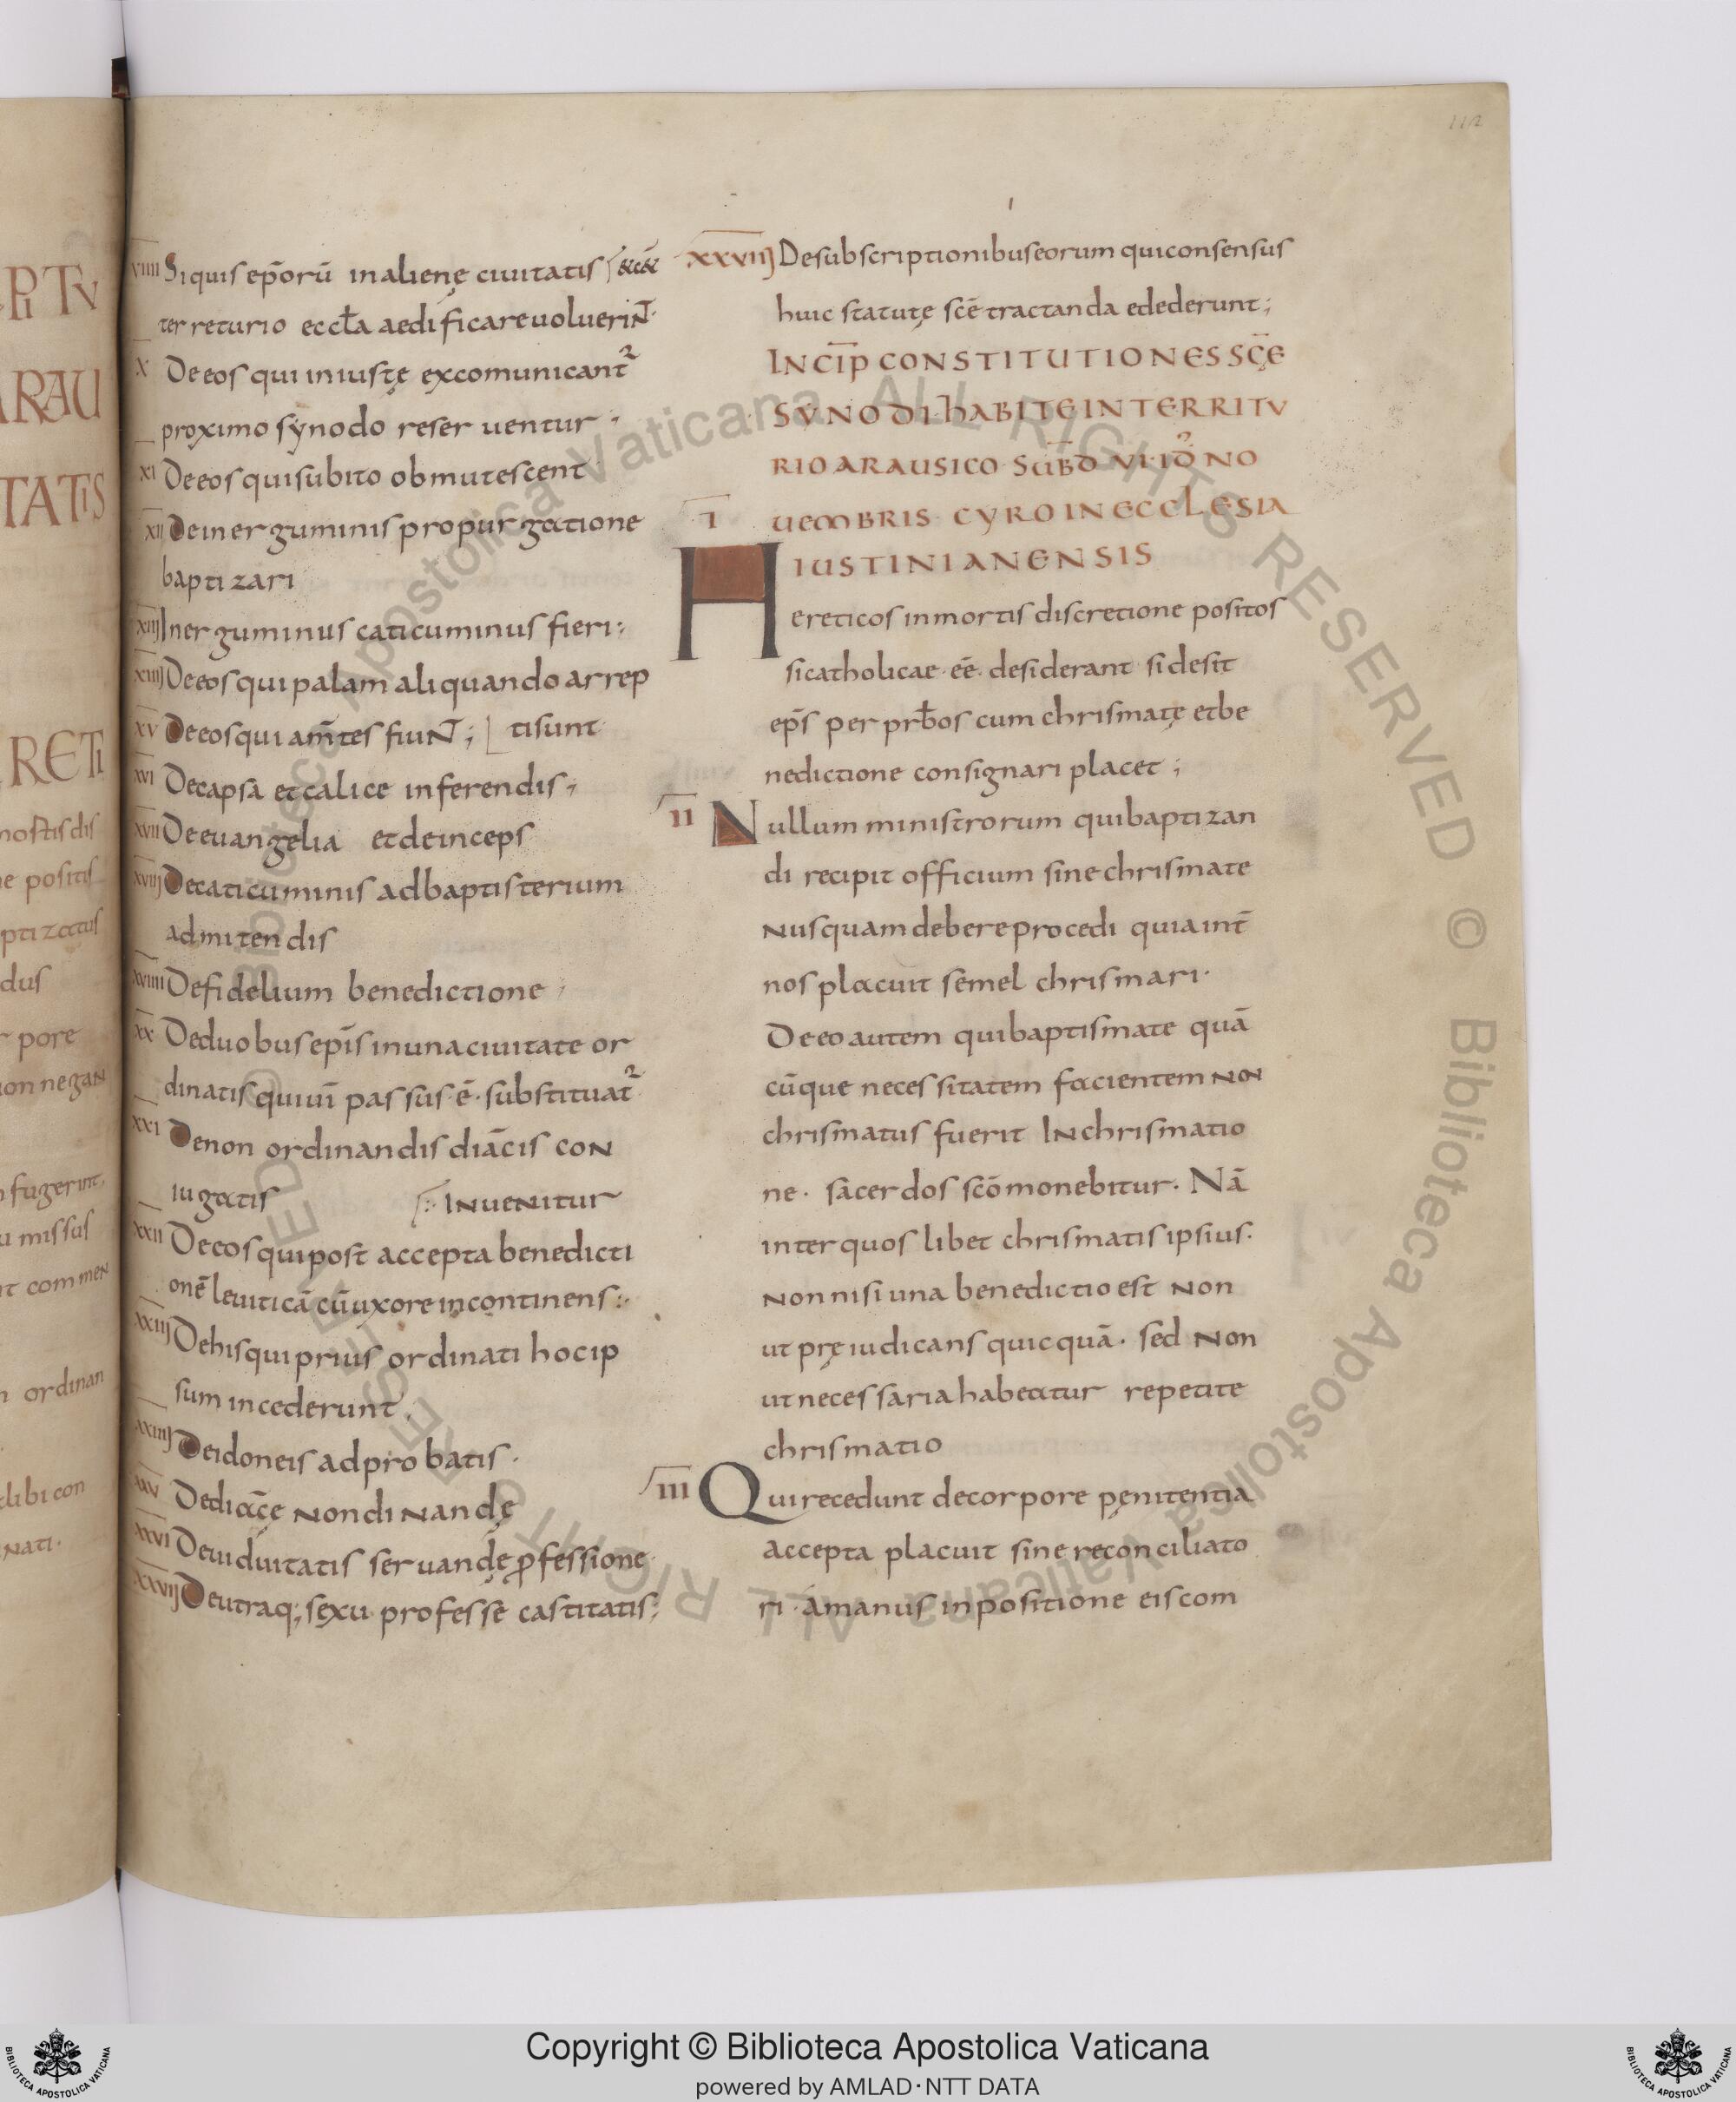 PITV
RAU
TATIS
RETI
nostis dis
e positis
ptizatus
dus
pore
on negan
fugerint
missus
t commen
ordinan
libi con
nati.
112
VIIII Si quis ep̄orū in alienę ciuitatis
ter returio eccl̄a aedificare uoluerint·
X De eos qui iniustę excomunicant᷑
proximo synodo reseruentur ·
XI De eos qui subito obmutescent
XII De inerguminis pro purgatione
baptizari
XIII Inerguminus caticuminus fieri ;
XIIII De eos qui palam aliquando arrep
XV De eos qui am̄tes fiunt ; tisunt
XVI De capsa et calice inferendis ;
XVII De euangelia et deinceps
XVIII De caticuminis ad baptisterium
admitendis
XVIIII De fidelium benedictione ;
XX De duobus ep̄is in una ciuitate or
dinatis qui uī passus ē · substituat᷑
XXI De non ordinandis diācis con
iugatis inuenitur
XXII De eos qui post accepta benedicti
onē leuiticā cū uxore incontinens :·
XXIII De his qui prius ordinati hoc ip
sum incederunt ·
XXIIII De idoneis ad probatis ·
XXV De diac̄ę non dinandę
XXVI De uiduitatis seruandę ꝓfessione·
XXVII De utraq; sexu professē castitatis ;
XXVIII De subscriptionibus eorum qui consensus
huic statutę scē tractanda edederunt ;
INCIP̄ CONSTITUTIONES SCĘ̄
SYNODI HABITE IN TERRITV
RIO ARAUSICO SUB̄D VI· ID̄ NO
UEMBRIS · CYRO IN ECCLESIA
IUSTINIANENSIS
I Hereticos in mortis discretione positos
si catholicae · eē · desiderant si desit
ep̄s per prb̄os cum chrismatę et be
nedictione consignari placet ;
II Nullum ministrorum qui baptizan
di recipit officium sine chrismate
nusquam debere procedi quia int̄
nos placuit semel chrismari·
De eo autem qui baptismate quā
cūque necessitatem facientem non
chrismatus fuerit In chrismatio
ne · sacerdos scōmonebitur · Nā
inter quos libet chrismatis ipsius·
non nisi una benedictio est non
ut pręiudicans quicquā · sed non
ut necessaria habeatur repetite
chrismatio
III Qui recedunt de corpore pęnitentia
accepta placuit sine reconciliato
ri · á manus inpositione eis com
© Biblioteca Apostolica Vaticana ALL RIGHTS RESERVED © Biblioteca Apostolica Vaticana ALL RIGHTS RESERVED
Copyright © Biblioteca Apostolica Vaticana
powered by AMLAD·NTT DATA
BIBLIOTECA APOSTOLICA VATICANA
BIBLIOTECA APOSTOLICA VATICANA